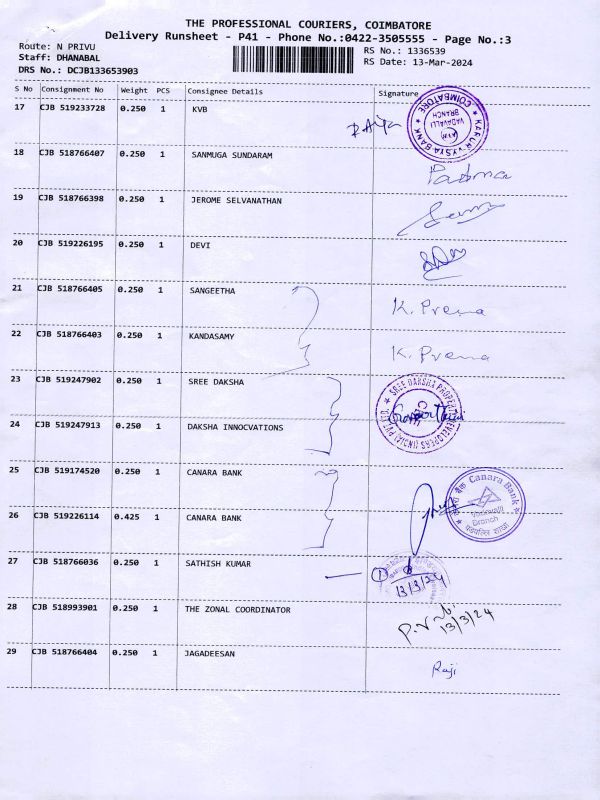 THE PROFESSIONAL COURIERS, COIMBATORE
Delivery Runsheet - P41 - Phone No.:0422-3505555 - Page No.:3
Route: N PRIVU
RS No.: 1336539
Staff: DHANABAL
RS Date: 13-Mar-2024
DRS No.: DCJB133653903
S No Consignment No Weight PCS Consignee Details Signature
17 CJB 519233728 0.250 1 KVB
KARUR VYSYA BANK COIMBATORE VADAVALLI BRANCH
18 CJB 518766407 0.250 1 SANMUGA SUNDARAM Padma
19 CJB 518766398 0.250 1 JEROME SELVANATHAN
20 CJB 519226195 0.250 1 DEVI
21 CJB 518766405 0.250 1 SANGEETHA K. Prema
22 CJB 518766403 0.250 1 KANDASAMY K. Prema
23 CJB 519247902 0.250 1 SREE DAKSHA
SREE DAKSHA PROPERTY DEVELOPERS (INDIA) PVT LTD.
24 CJB 519247913 0.250 1 DAKSHA INNOCVATIONS
25 CJB 519174520 0.250 1 CANARA BANK
Canara Bank
Branch
26 CJB 519226114 0.425 1 CANARA BANK
27 CJB 518766036 0.250 1 SATHISH KUMAR
13/3/24
28 CJB 518993901 0.250 1 THE ZONAL COORDINATOR
13/3/24
29 CJB 518766404 0.250 1 JAGADEESAN Raji